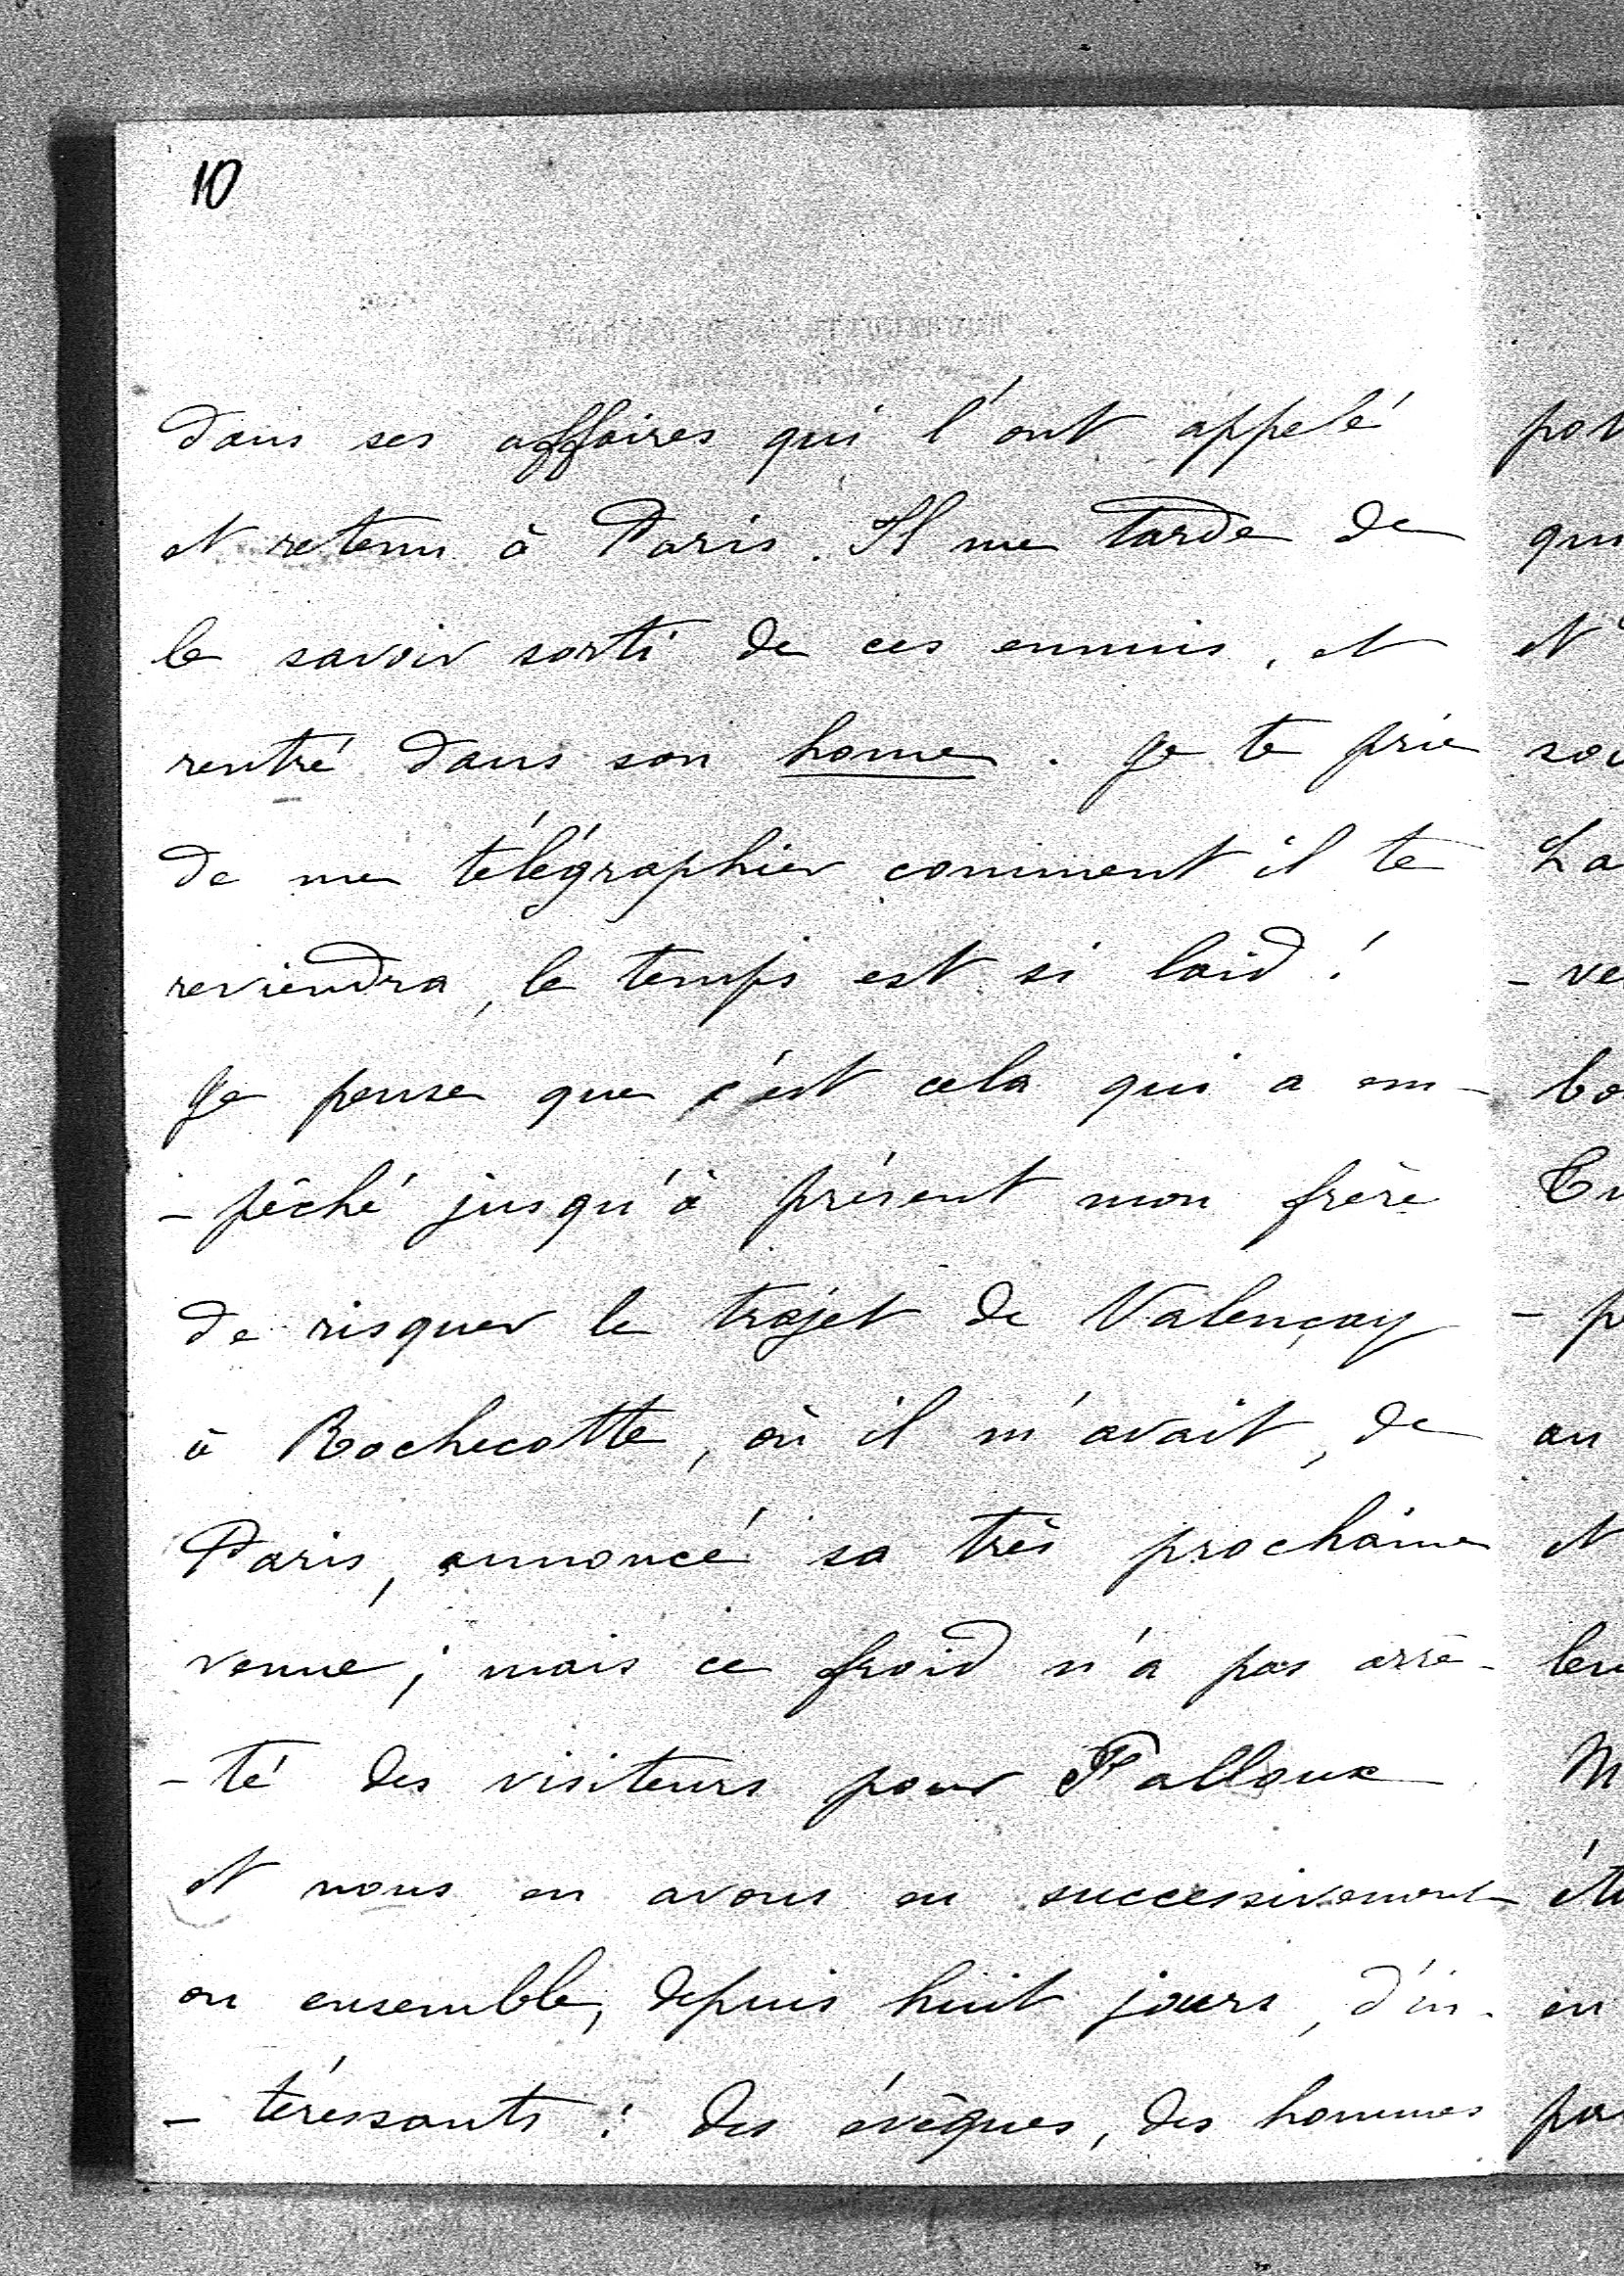 10
dans ses affaires qui l'ont appelé
et retenu à Paris. Il me tarde de
le savoir sorti de ces ennuis, et
rentré dans son home. Je te prie
de me télégraphier comment il te
reviendra, le temps est si laid !
Je pense que c'est cela qui a em-
-pêché jusqu'à présent mon frère
de risquer le trajet de Valençay
à Rochecotte, où il m'avait, de
Paris, annoncé sa très prochaine
venue ; mais ce froid n'a pas arrê-
-té des visiteurs pour Falloux
et nous en avons eu successivement
ou ensemble, depuis huit jours, d'in-
-téressants : des évêques, des hommes